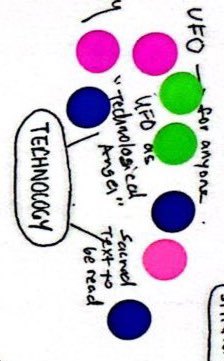 UFO
for anyone
UFO as
"Technological
Angel"
TECHNOLOGY
Sacred
Text to
be read